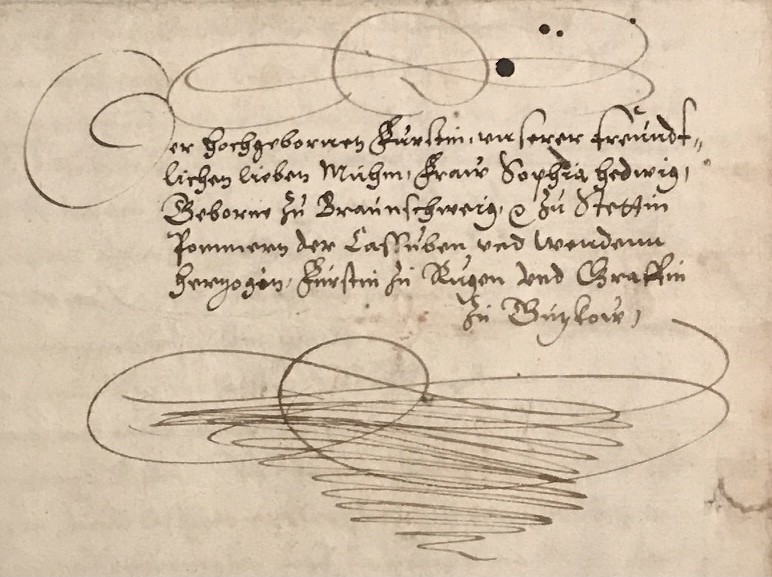 Der hochgebornen Fürstin, unserer freundt„
lichen lieben Muhm, Fraw Sophia hedwig,
Geborne zu Braunschweig, zu Stettin
Pommern der Cassuben und Wendenn
hertzogin, Fürstin zu Rügen und Graffin
zu Gutzkow,